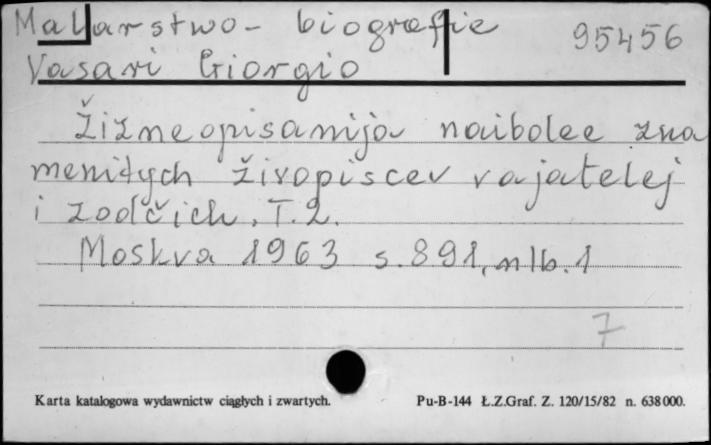 Malarstwo - biografie 95456
Vasari Giorgio
Žizneopisanija naibolee zna
menitych živopiscev vajatelej
i zodčich. T. 2.
Moskva 1963 s. 891, nlb. 1
7
Karta katalogowa wydawnictw ciągłych i zwartych. Pu-B-144 Ł.Z.Graf. Z. 120/15/82 n. 638000.